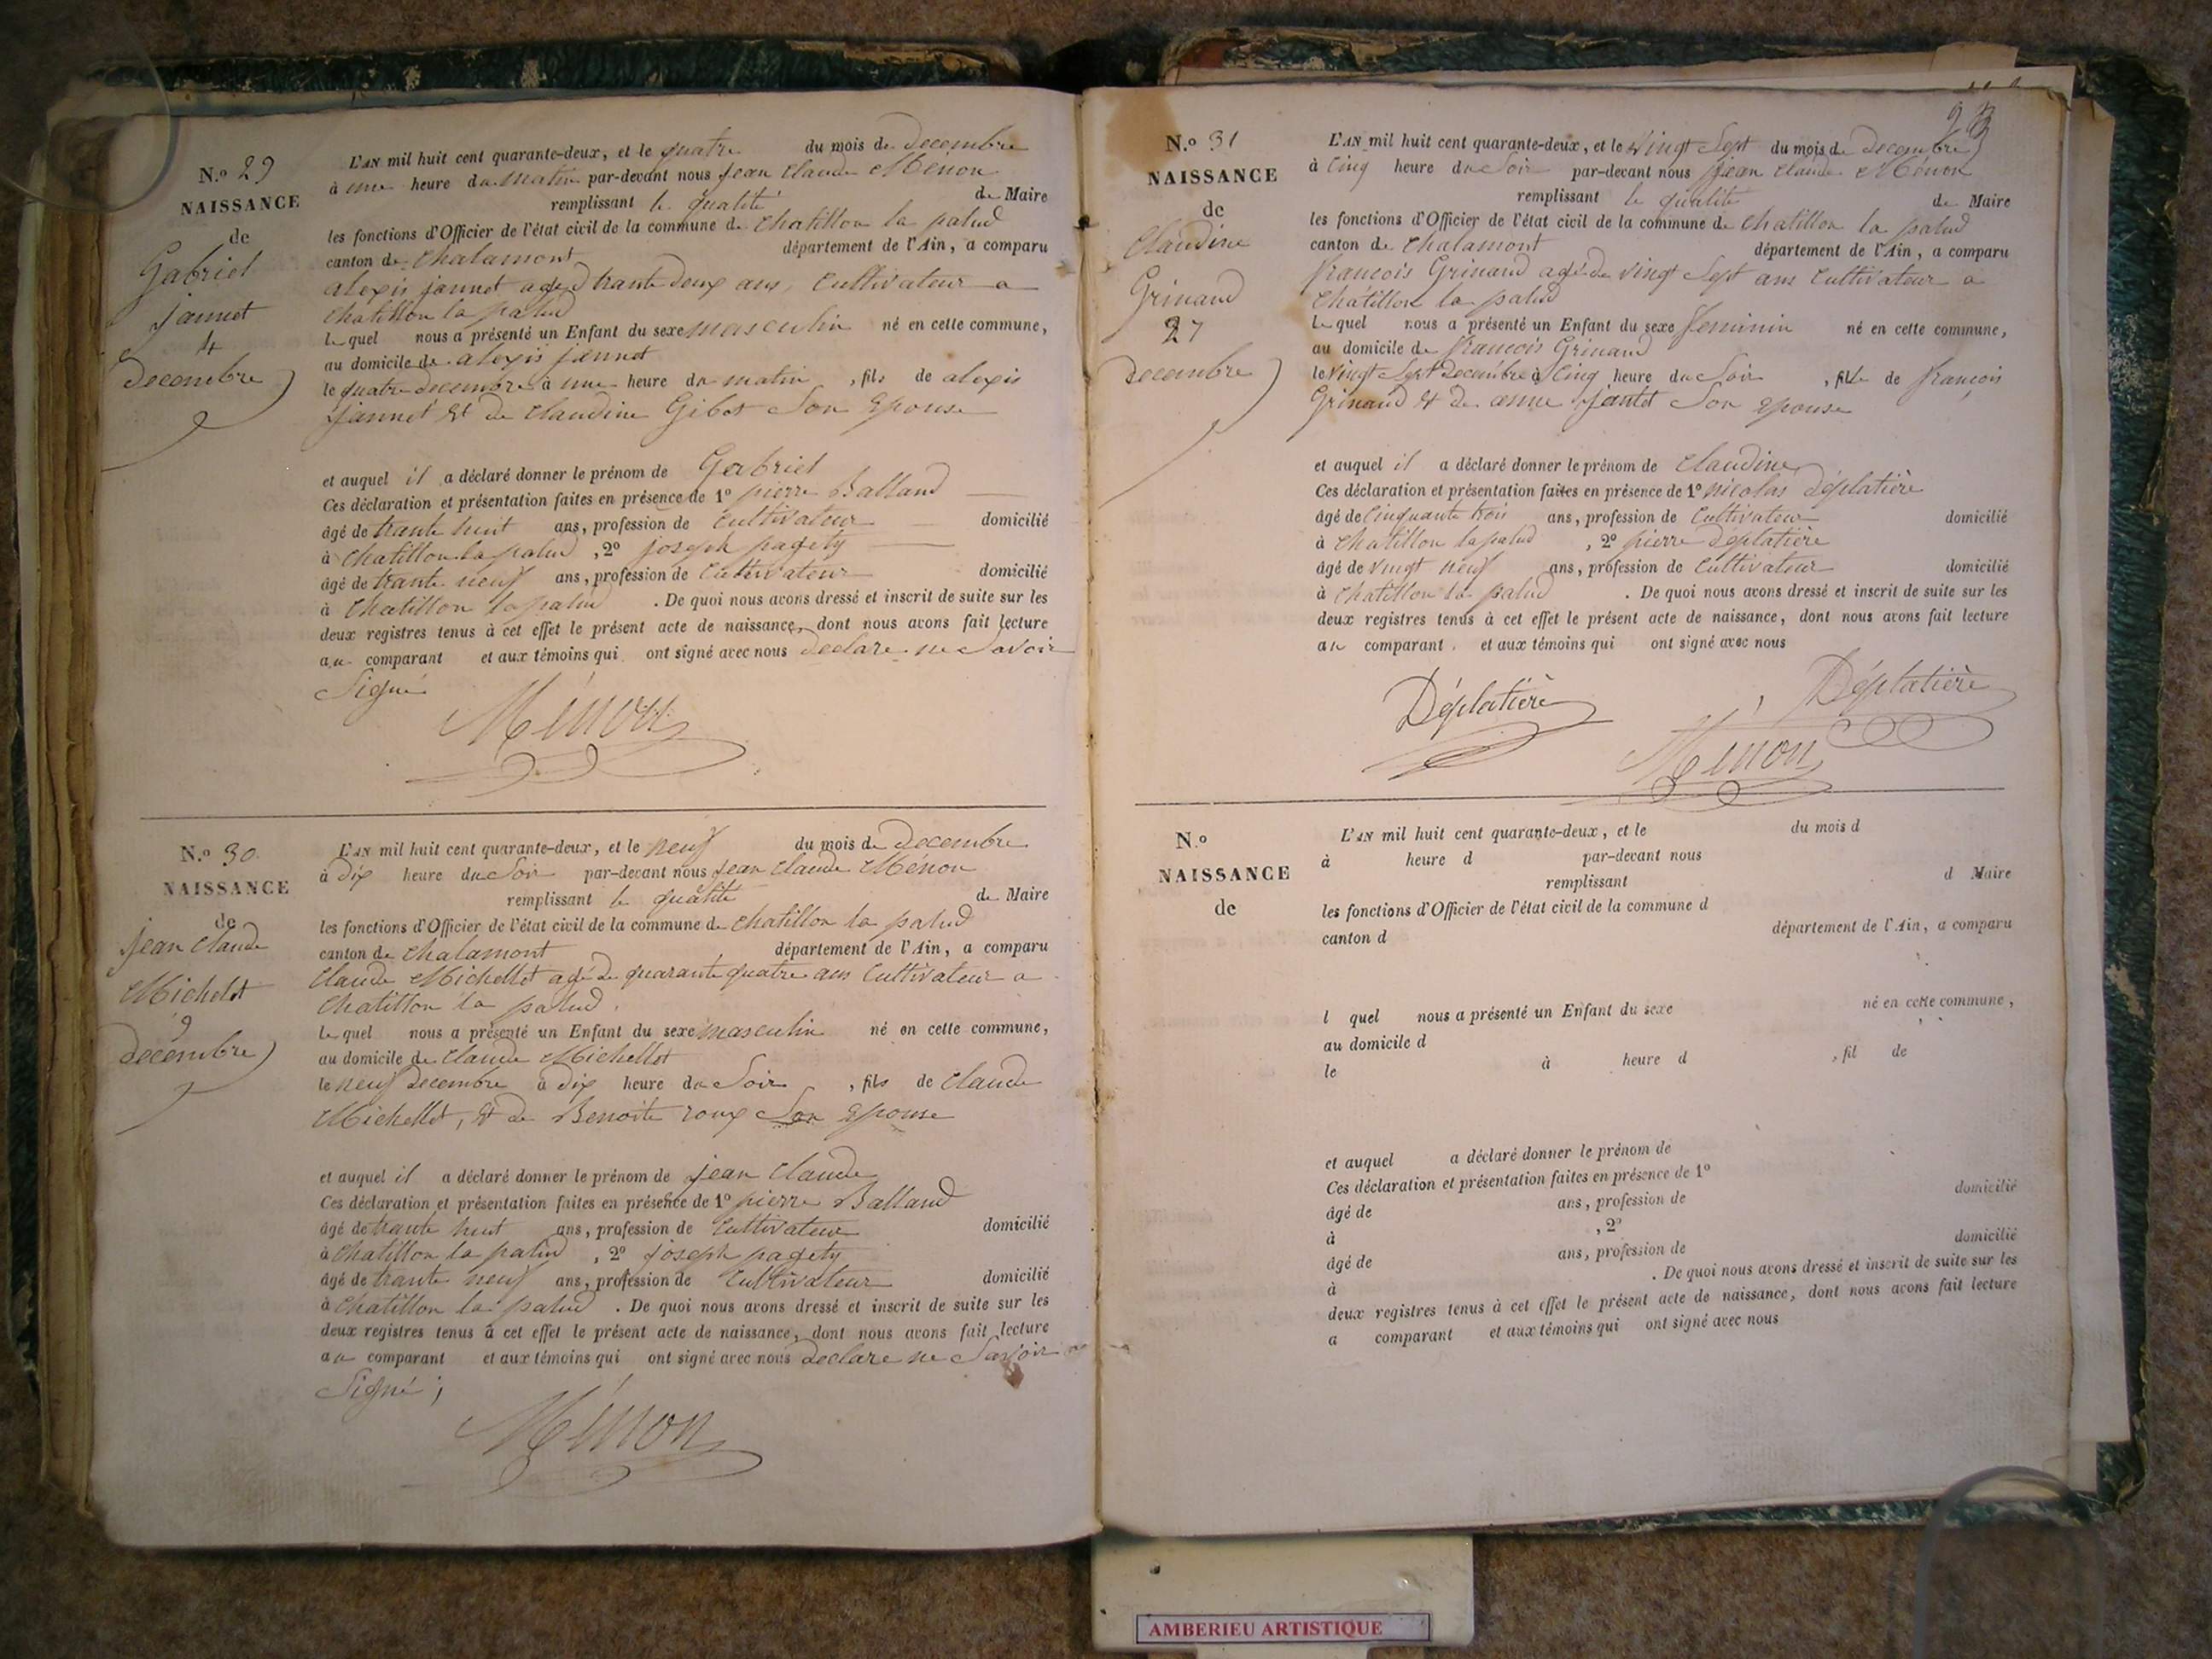 N.º 29
NAISSANCE
de
Gabriel
jannet
4
Decembre
L'AN mil huit cent quarante-deux, et le quatre du mois de Decembre
à une heure du matin par-devant nous jean Claude Ménon
remplissant le qualité de Maire
les fonctions d'Officier de l'état civil de la commune de Chatillon la palud
canton de Chalamont département de l'Ain, a comparu
alexis jannet agé d trante deux ans, Cultivateur a
Chatillon la palud
le quel nous a présenté un Enfant du sexe masculin né en cette commune,
au domicile de alexis jannet
le quatre decembre à une heure du matin, fils de alexis
jannet et de Claudine Gibot Son Epouse
et auquel il a déclaré donner le prénom de Gabriel
Ces déclaration et présentation faites en présence de 1º pierre Balland
âgé de trante huit ans, profession de Cultivateur domicilié
à Chatillon la palud, 2º joseph pagety
âgé de trante neuf ans, profession de Cultivateur domicilié
à Chatillon la palud. De quoi nous avons dressé et inscrit de suite sur les
deux registres tenus à cet effet le présent acte de naissance, dont nous avons fait lecture
au comparant et aux témoins qui ont signé avec nous Declare ne Savoir
Signé
Ménon
N.º 30
NAISSANCE
de
jean Claude
Michelet
9
Decembre
L'AN mil huit cent quarante-deux, et le neuf du mois de Decembre
à Dix heure du Soir par-devant nous jean Claude Ménon
remplissant le qualité de Maire
les fonctions d'Officier de l'état civil de la commune de Chatillon la palud
canton de Chalamont département de l'Ain, a comparu
Claude Michellet agé de quarante quatre ans Cultivateur a
Chatillon la palud
le quel nous a présenté un Enfant du sexe masculin né en cette commune,
au domicile de Claude Michellet
le neuf Decembre à Dix heure du Soir, fils de Claude
Michellet, et de Benoite roux Son Epouse
et auquel il a déclaré donner le prénom de jean Claude
Ces déclaration et présentation faites en présence de 1º pierre Balland
âgé de trante huit ans, profession de Cultivateur domicilié
à Chatillon la palud, 2º joseph pagety
âgé de trante neuf ans, profession de Cultivateur domicilié
à Chatillon la palud. De quoi nous avons dressé et inscrit de suite sur les
deux registres tenus à cet effet le présent acte de naissance, dont nous avons fait lecture
au comparant et aux témoins qui ont signé avec nous Declare ne Savoir
Signé;
Ménon
N.º 31
NAISSANCE
de
Claudine
Grinand
27
Decembre
L'AN mil huit cent quarante-deux, et le Vingt Sept du mois de Decembre
à Cinq heure du Soir par-devant nous jean Claude Ménon
remplissant le qualité de Maire
les fonctions d'Officier de l'état civil de la commune de Chatillon la palud
canton de Chalamont département de l'Ain, a comparu
francois Grinand agé de Vingt Sept ans Cultivateur a
Chatillon la palud
le quel nous a présenté un Enfant du sexe feminin né en cette commune,
au domicile de francois Grinand
le Vingt Sept Decembre à Cinq heure du Soir, fille de francois
Grinand et de anne jantet Son Epouse
et auquel il a déclaré donner le prénom de Claudine
Ces déclaration et présentation faites en présence de 1º nicolas Déplatière
âgé de Cinquante trois ans, profession de Cultivateur domicilié
à Chatillon la palud, 2º pierre Déplatière
âgé de Vingt neuf ans, profession de Cultivateur domicilié
à Chatillon la palud. De quoi nous avons dressé et inscrit de suite sur les
deux registres tenus à cet effet le présent acte de naissance, dont nous avons fait lecture
au comparant et aux témoins qui ont signé avec nous
Déplatière Déplatière
Ménon
N.º
NAISSANCE
de
L'AN mil huit cent quarante-deux, et le du mois d
à heure d par-devant nous
remplissant d Maire
les fonctions d'Officier de l'état civil de la commune d
canton d département de l'Ain, a comparu
l quel nous a présenté un Enfant du sexe né en cette commune,
au domicile d
le à heure d, fil de
et auquel a déclaré donner le prénom de
Ces déclaration et présentation faites en présence de 1º
âgé de ans, profession de domicilié
à , 2º
âgé de ans, profession de domicilié
à . De quoi nous avons dressé et inscrit de suite sur les
deux registres tenus à cet effet le présent acte de naissance, dont nous avons fait lecture
a comparant et aux témoins qui ont signé avec nous
AMBERIEU ARTISTIQUE